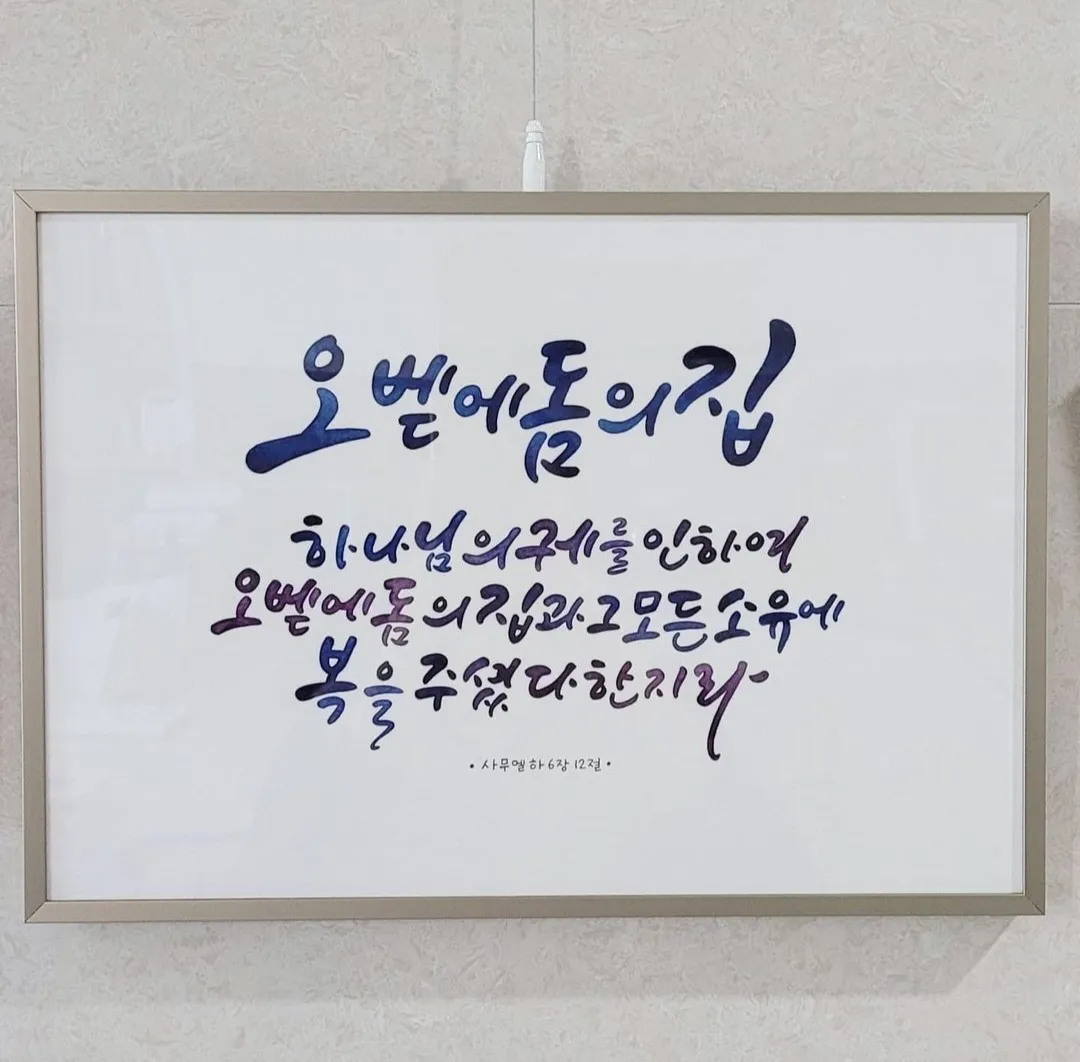 오벧에돔의 집
하나님의 궤를 인하여
오벧에돔의 집과 그 모든 소유에
복을 주셨다 한지라
• 사무엘하 6장 12절 •